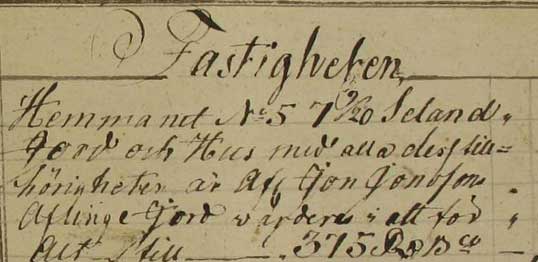 Fastigheten
Hemmanet No 5 7 9/20 Seland
Jord och Huus med alla dess till=
hörigheter är Afl. Jon Jonssons
Aflinge Jord värderas i ett för
Alt till — . 375 Rd Bco —